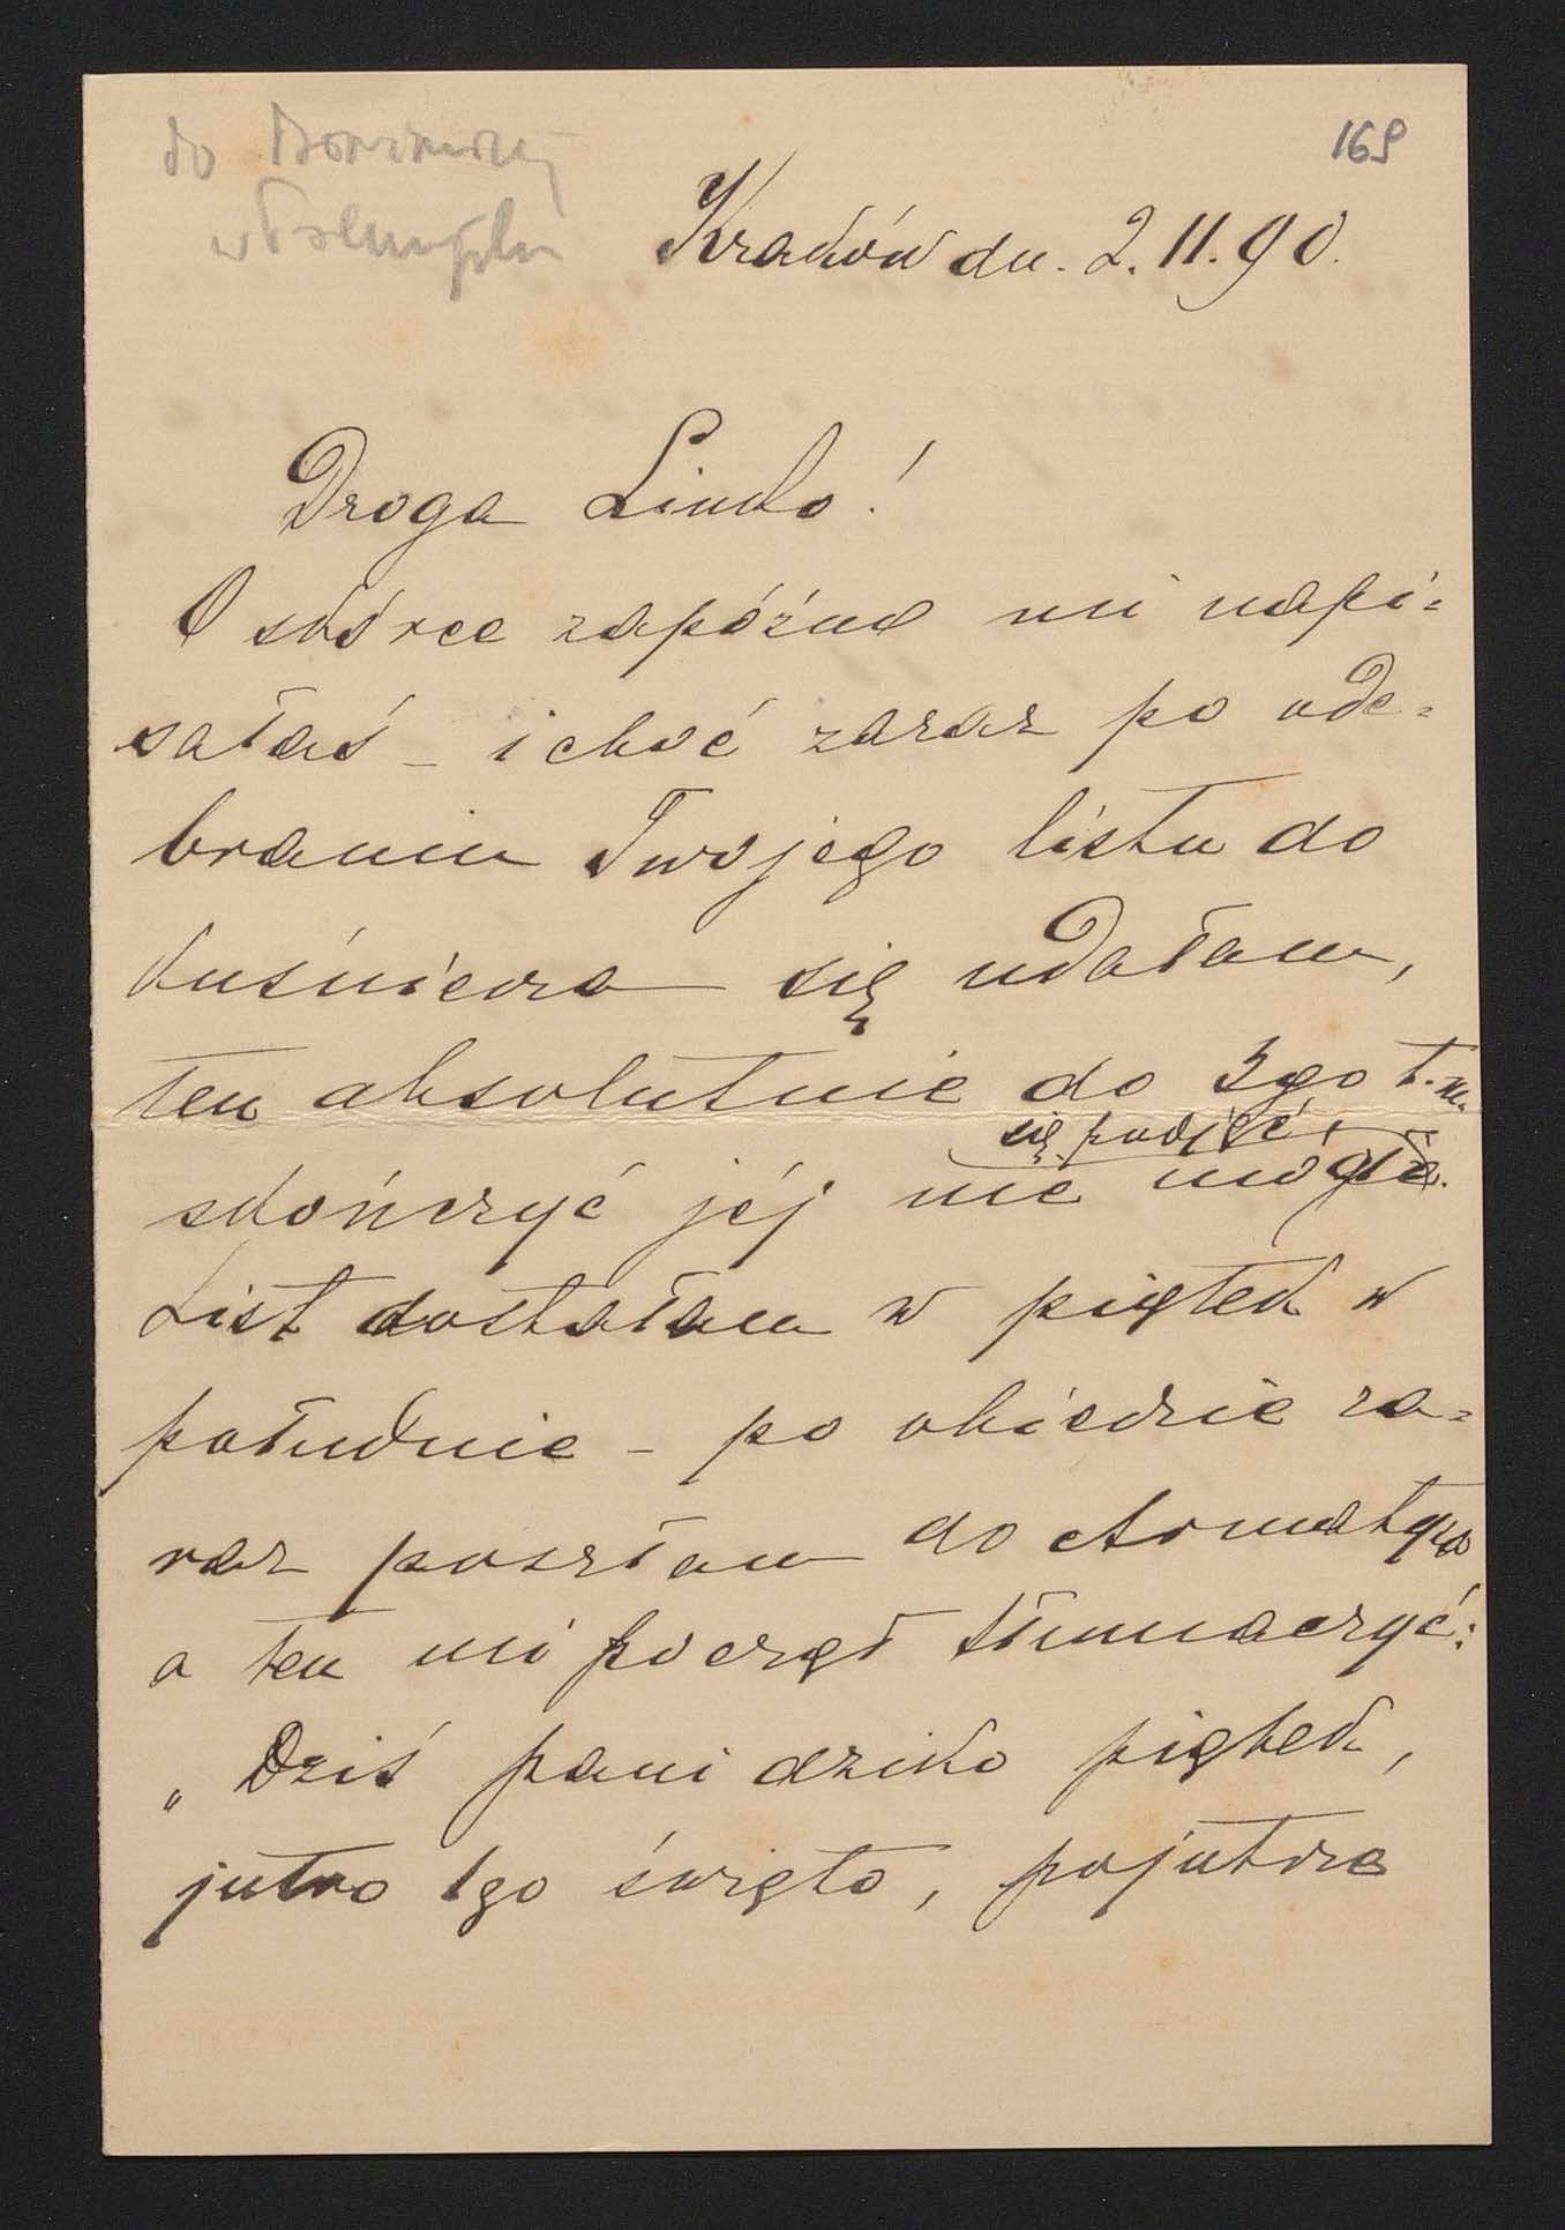 do
w Przemyślu
169
Kraków dn. 2.11.90.
Droga Linko!
O skórce zapóźno mi napi=
sałaś – i choć zaraz po ode=
braniu Twojego listu do
kuśnierza się udałam,
ten absolutnie do 3go t.m.
się podjąć,
skończyć jéj nie mógł.
List dostałam w piątek w
południe – po obiedzie za=
raz poszłam do Armatysa
a ten mi począł tłumaczyć:
„Dziś pani dziko piątek,
jutro 1go święto, pojutrze